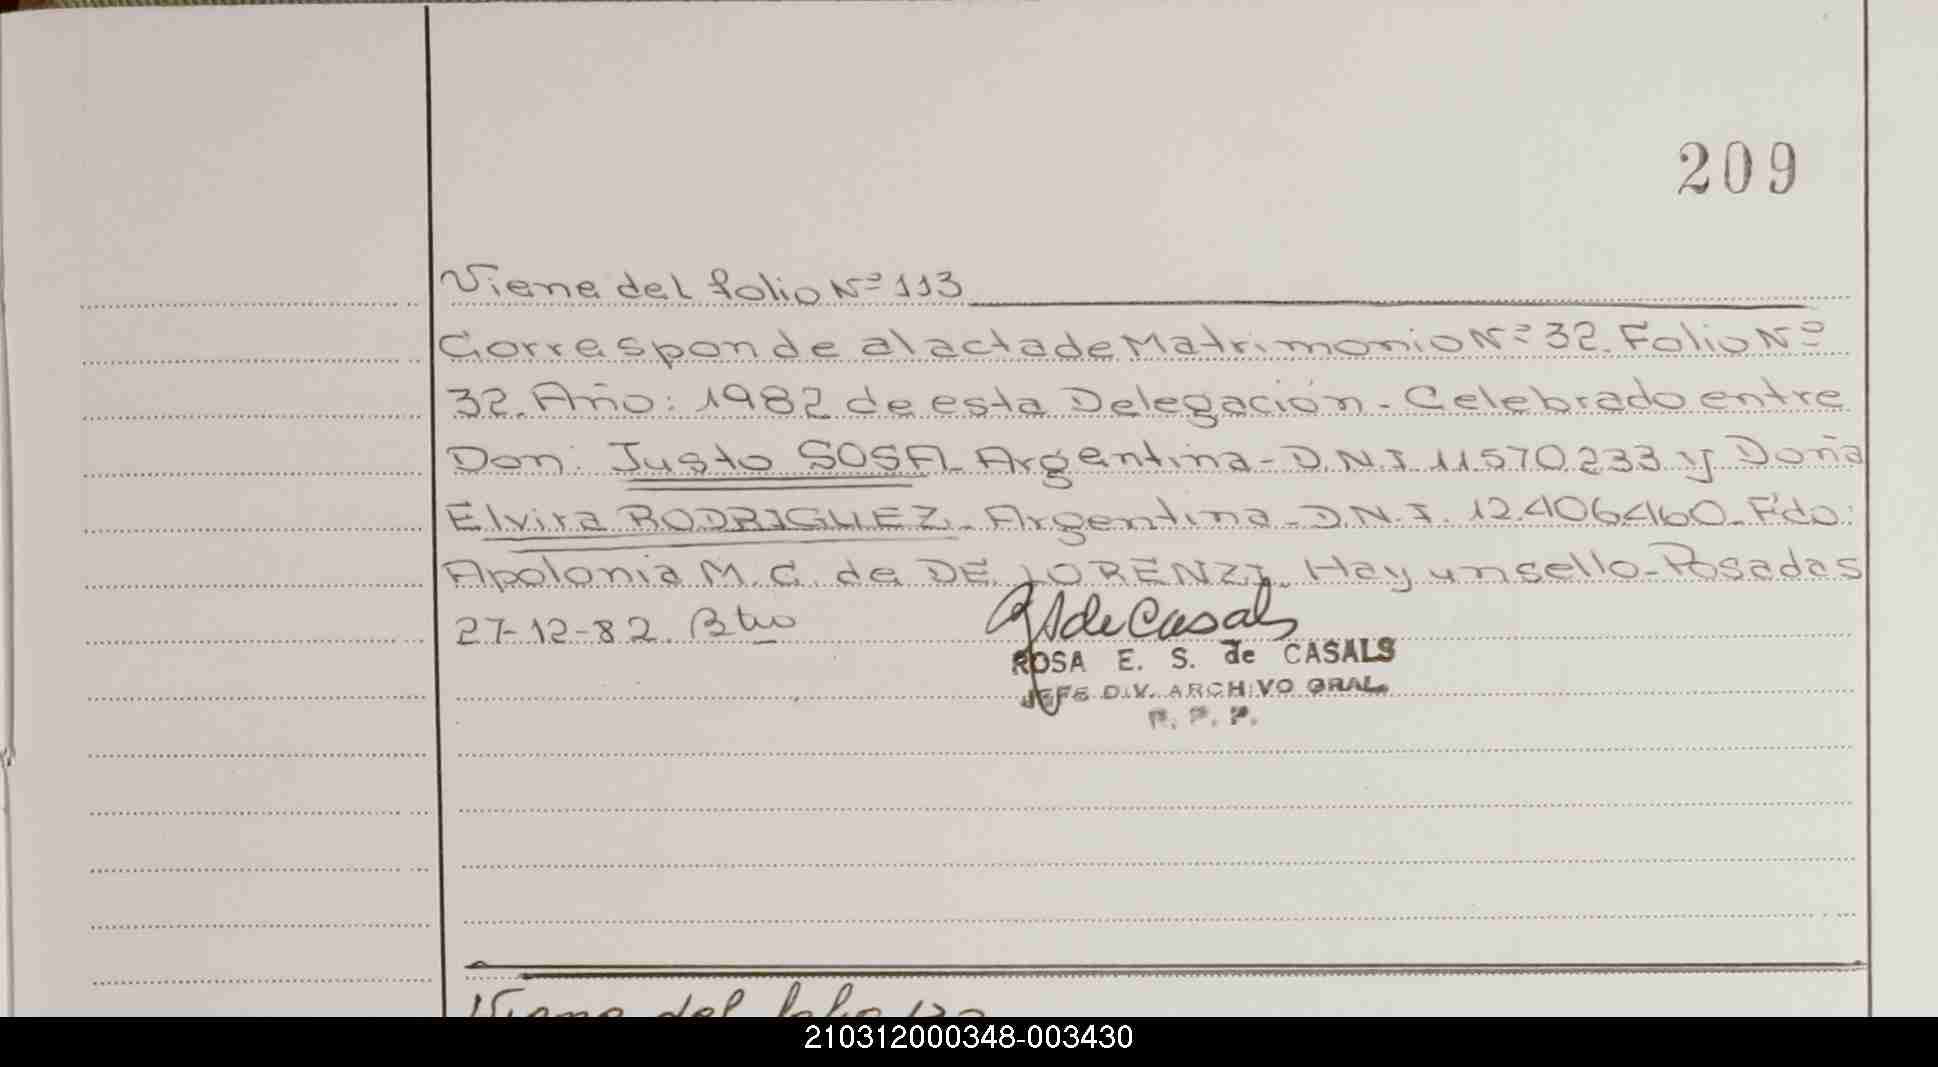 209
Viene del folio Nº 113
Corresponde al acta de Matrimonio Nº 32. Folio Nº
32. Año: 1982 de esta Delegación - Celebrado entre
Don: Justo SOSA - Argentina - D.N.I 11.570.233 y Doña
Elvira RODRIGUEZ - Argentina - D.N.I. 12.406460 - Fdo:
Apolonia M. C. de DE LORENZI - Hay un sello - Posadas
27-12-82.
de Casals
ROSA E. S. de CASALS
JEFE DIV. ARCHIVO GRAL.
R. P. P.
Viene del folio
210312000348-003430